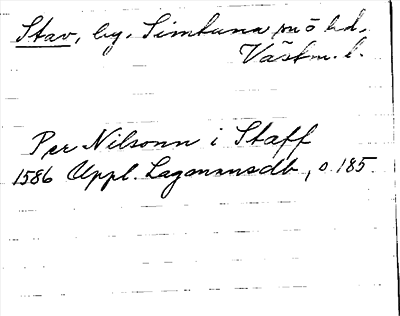 Stav, by, Simtuna sn o hd,
Västm. l.
Per Nilsonn i Staff
1586 Uppl. Lagmansdb, s. 185.